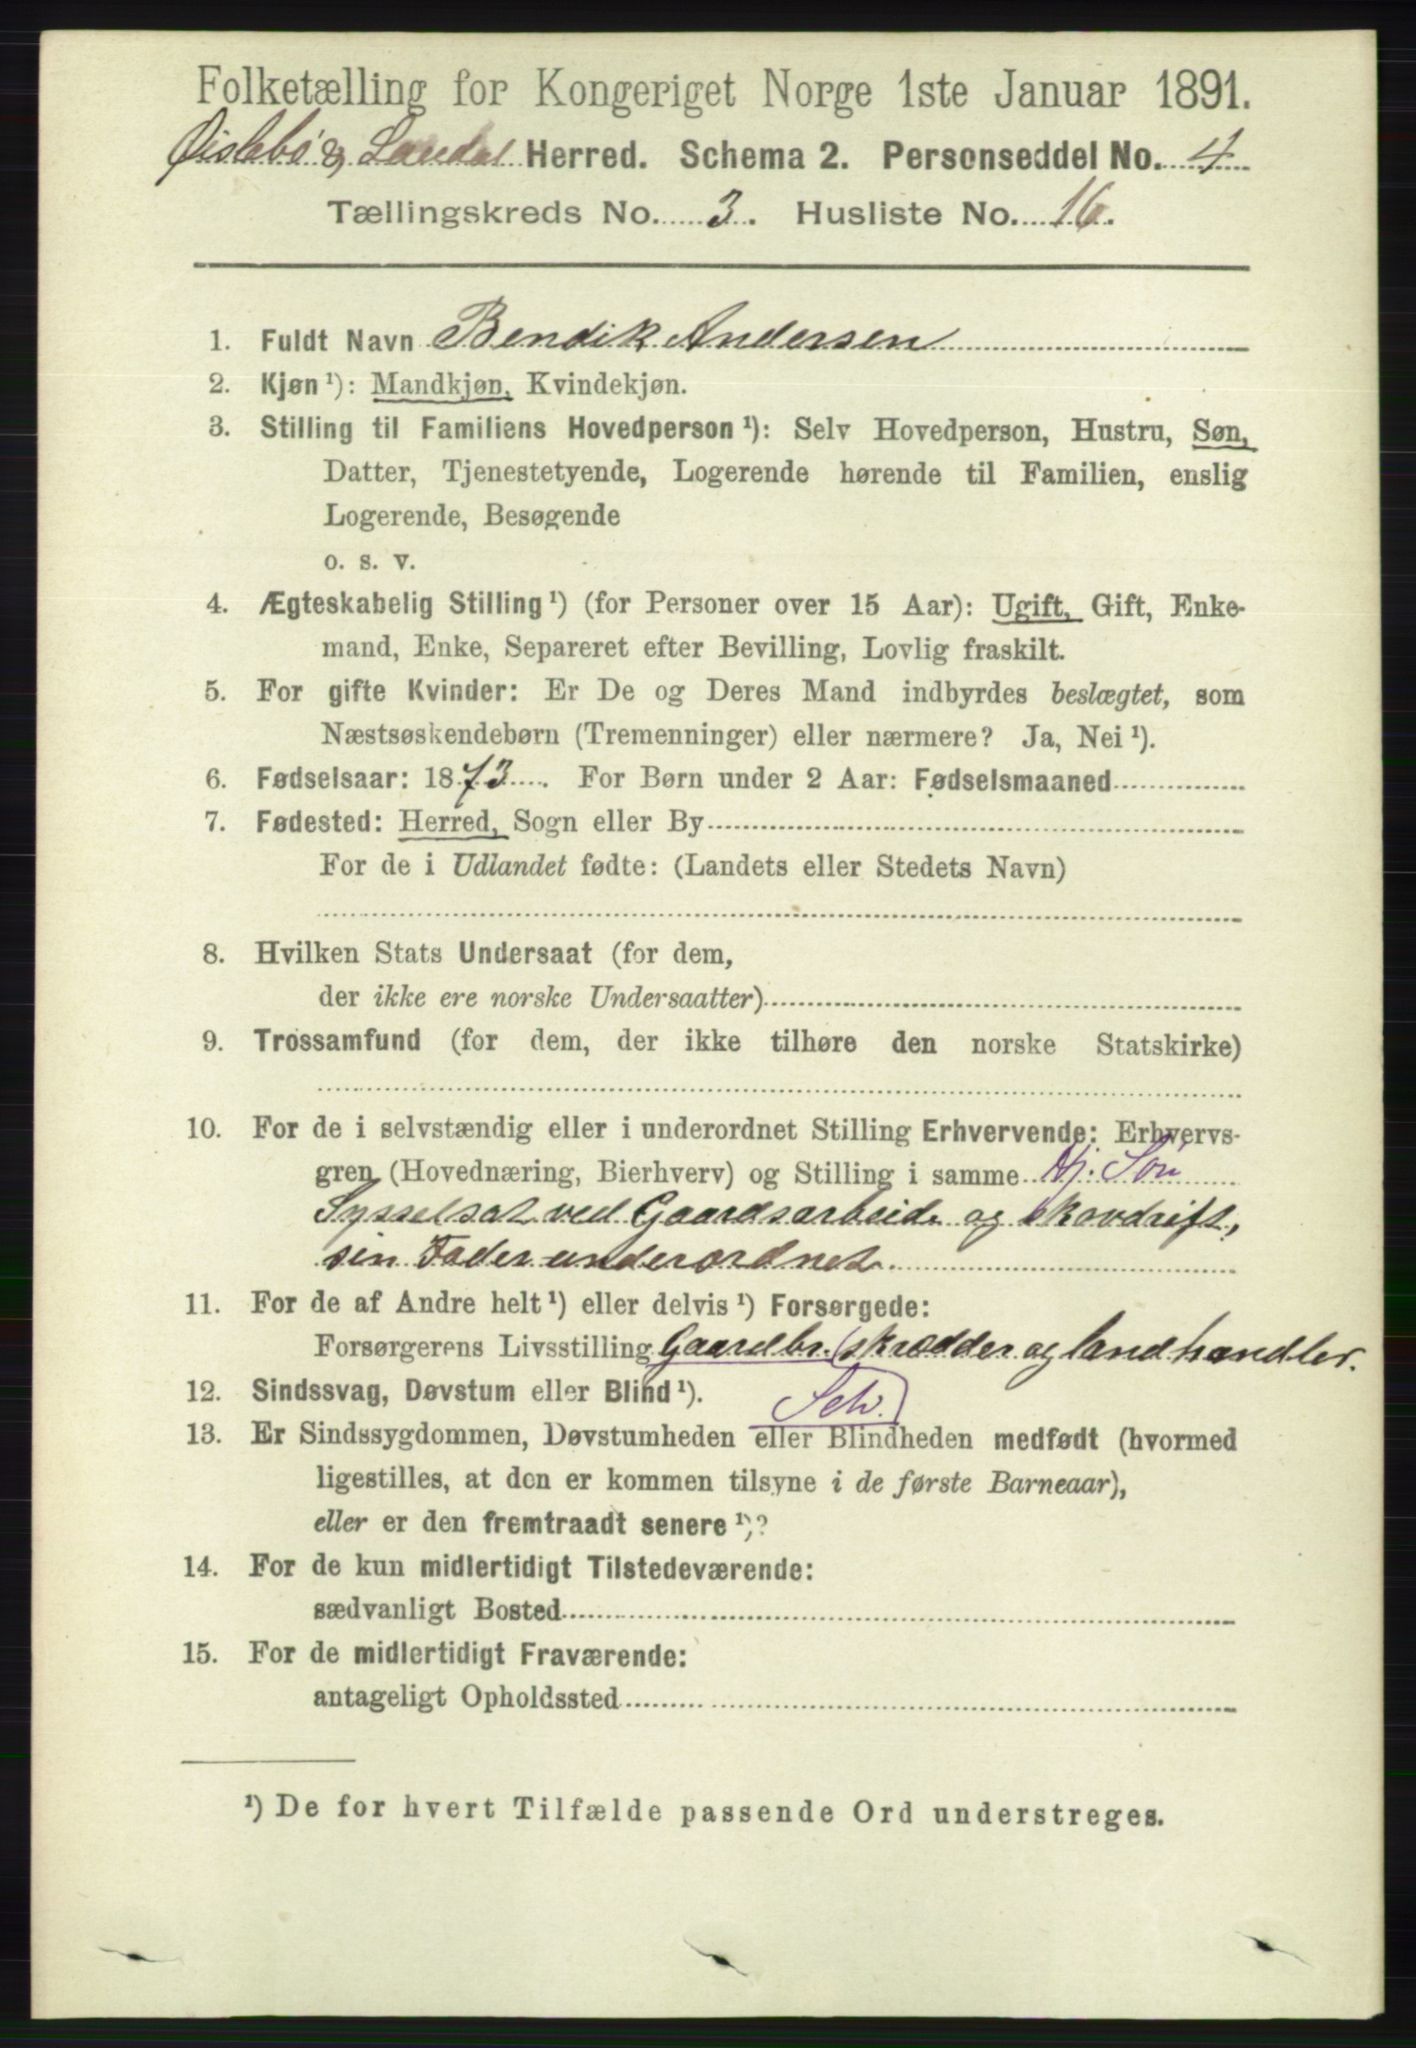 Folketælling for Kongeriget Norge 1ste Januar 1891.
Øislebø & Laudal Herred. Schema 2. Personseddel No. 4
Tællingskreds No. 3. Husliste No. 16.
1. Fuldt Navn Bendik Andersen
2. Kjøn ¹): Mandkjøn, Kvindekjøn.
3. Stilling til Familiens Hovedperson ¹): Selv Hovedperson, Hustru, Søn,
Datter, Tjenestetyende, Logerende hørende til Familien, enslig
Logerende, Besøgende
o. s. v.
4. Ægteskabelig Stilling ¹) (for Personer over 15 Aar): Ugift, Gift, Enke-
mand, Enke, Separeret efter Bevilling, Lovlig fraskilt.
5. For gifte Kvinder: Er De og Deres Mand indbyrdes beslægtet, som
Næstsøskendebørn (Tremenninger) eller nærmere? Ja, Nei ¹).
6. Fødselsaar: 1873. For Børn under 2 Aar: Fødselsmaaned
7. Fødested: Herred, Sogn eller By
For de i Udlandet fødte: (Landets eller Stedets Navn)
8. Hvilken Stats Undersaat (for dem,
der ikke ere norske Undersaatter)
9. Trossamfund (for dem, der ikke tilhøre den norske Statskirke)
10. For de i selvstændig eller i underordnet Stilling Erhvervende: Erhvervs-
gren (Hovednæring, Bierhverv) og Stilling i samme Hj. Søn
Sysselsat ved Gaardsarbeide og skovdrift,
sin Fader underordnet.
11. For de af Andre helt ¹) eller delvis ¹) Forsørgede:
Forsørgerens Livsstilling Gaardbr. skrædder og landhandler.
12. Sindssvag, Døvstum eller Blind ¹). Selv.
13. Er Sindssygdommen, Døvstumheden eller Blindheden medfødt (hvormed
ligestilles, at den er kommen tilsyne i de første Barneaar),
eller er den fremtraadt senere ¹)?
14. For de kun midlertidigt Tilstedeværende:
sædvanligt Bosted
15. For de midlertidigt Fraværende:
antageligt Opholdssted
¹) De for hvert Tilfælde passende Ord understreges.